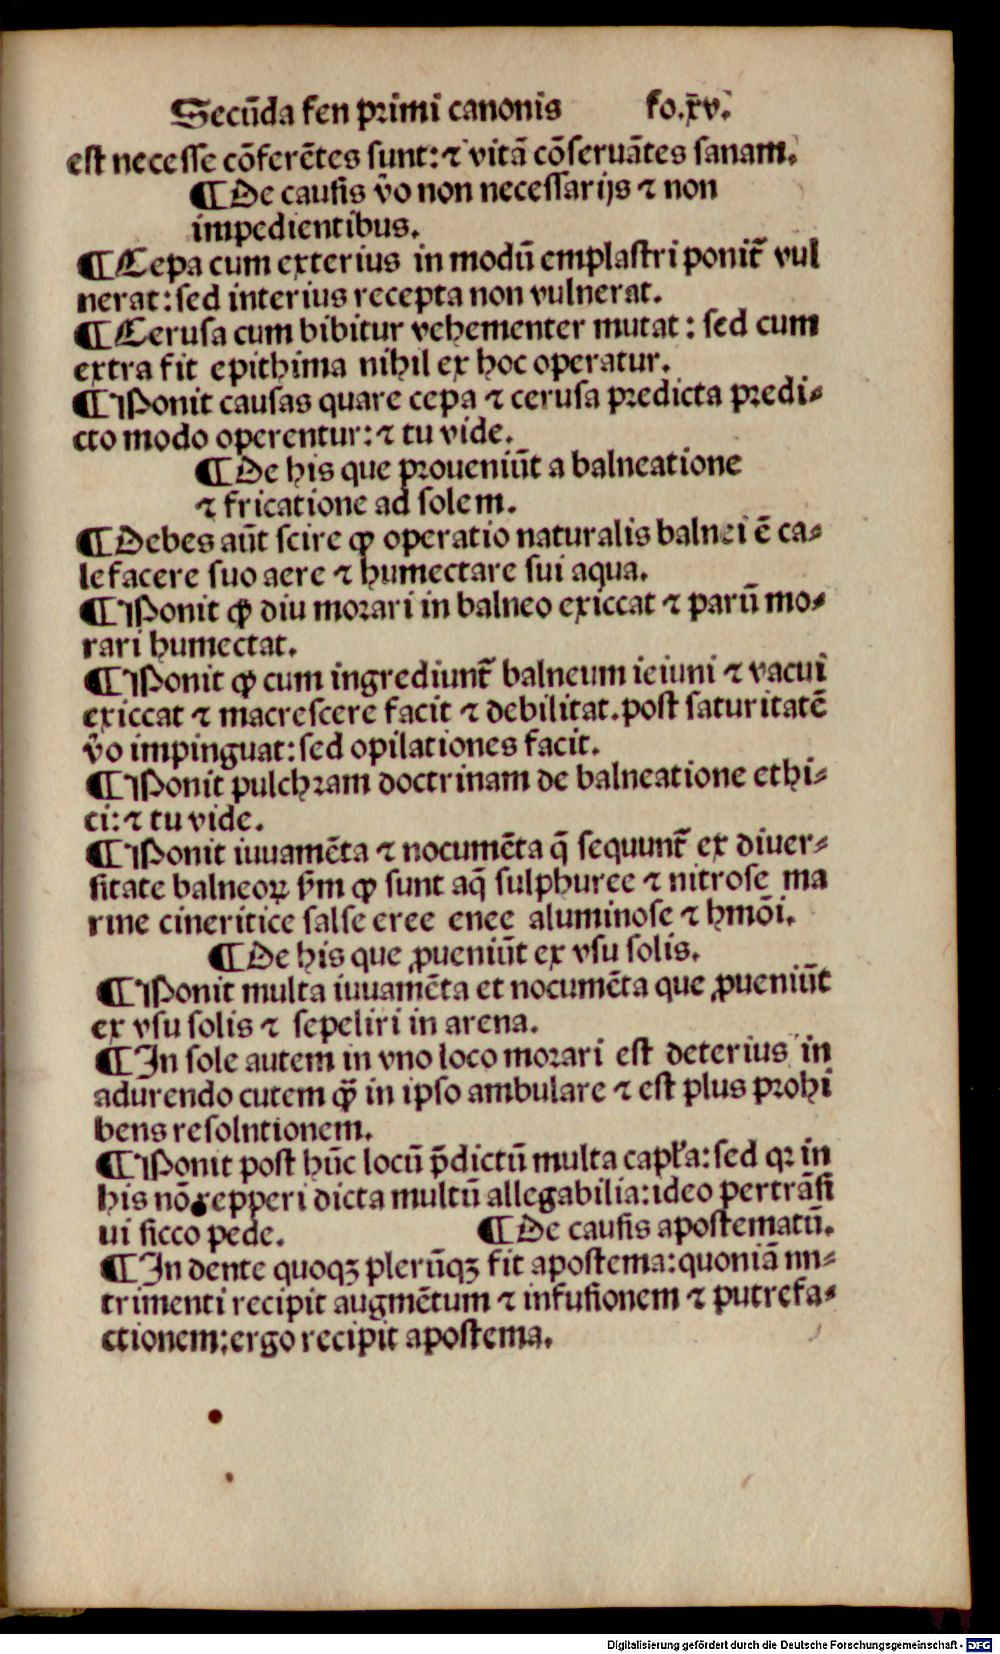 Secūda fen primi canonis fo.xv.
est necesse cōferētes sunt: ⁊ vitā cōseruātes sanam.
¶De causis v̄o non necessarijs ⁊ non
impedientibus.
¶Cepa cum exterius in modū emplastri ponit᷑ vul
nerat: sed interius recepta non vulnerat.
¶Cerusa cum bibitur vehementer mutat: sed cum
extra fit epithima nihil ex hoc operatur.
¶Ponit causas quare cepa ⁊ cerusa predicta predi-
cto modo operentur: ⁊ tu vide.
¶De his que proueniūt a balneatione
⁊ fricatione ad solem.
¶Debes aūt scire ꝙ operatio naturalis balnei ē ca-
lefacere suo aere ⁊ humectare sui aqua.
¶Ponit ꝙ diu morari in balneo exiccat ⁊ parū mo-
rari humectat.
¶Ponit ꝙ cum ingrediunt᷑ balneum ieiuni ⁊ vacui
exiccat ⁊ macrescere facit ⁊ debilitat. post saturitatē
v̄o impinguat: sed opilationes facit.
¶Ponit pulchram doctrinam de balneatione ethi-
ci: ⁊ tu vide.
¶Ponit iuuamēta ⁊ nocumēta q̄ sequunt᷑ ex diuer-
sitate balneoꝝ ẜm ꝙ sunt aq̄ sulphuree ⁊ nitrose ma
rine cineritice salse eree enee aluminose ⁊ hmōi.
¶De his que ꝓueniūt ex vsu solis.
¶Ponit multa iuuamēta et nocumēta que ꝓueniūt
ex vsu solis ⁊ sepeliri in arena.
¶In sole autem in vno loco morari est deterius in
adurendo cutem ꝙ̄ in ipso ambulare ⁊ est plus prohi
bens resolntionem.
¶Ponit post hūc locū p̄dictū multa capl̓a: sed qꝛ in
his nō repperi dicta multū allegabilia: ideo pertrāsi
ui sicco pede. ¶De causis apostematū.
¶In dente quoqꝫ plerūqꝫ fit apostema: quoniā nn-
trimenti recipit augmētum ⁊ infusionem ⁊ putrefa-
ctionem: ergo recipit apostema.
Digitalisierung gefördert durch die Deutsche Forschungsgemeinschaft - DFG